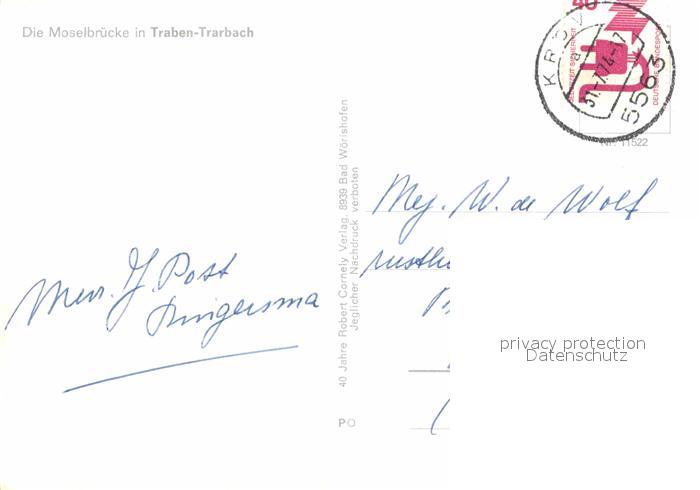 Die Moselbrücke in Traben-Trarbach
Mevr. J. Post
Dingersma
40 Jahre Robert Cornely Verlag, 8939 Bad Wörishofen
Jeglicher Nachdruck verboten
PO
40
JEDERZEIT SICHERHEIT
DEUTSCHE BUNDESPOST
KRÖV
a
31.-7.74-17
5563
Nr. 11522
Mej. W. de Wolf
privacy protection
Datenschutz